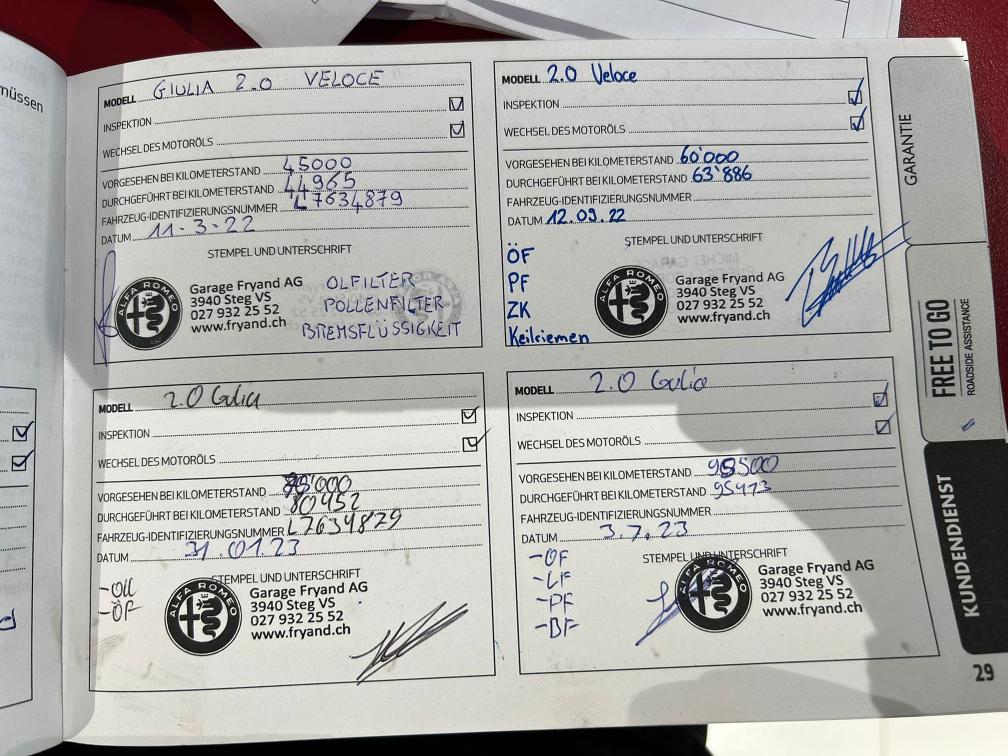 müssen
MODELL GIULIA 2.0 VELOCE
INSPEKTION
WECHSEL DES MOTORÖLS
VORGESEHEN BEI KILOMETERSTAND 45000
DURCHGEFÜHRT BEI KILOMETERSTAND 44965
FAHRZEUG-IDENTIFIZIERUNGSNUMMER L7634879
DATUM 11-3-22
STEMPEL UND UNTERSCHRIFT
ALFA ROMEO
Garage Fryand AG
3940 Steg VS
027 932 25 52
www.fryand.ch
OLFILTER
POLLENFILTER
BREMSFLÜSSIGKEIT
MODELL 2.0 Veloce
INSPEKTION
WECHSEL DES MOTORÖLS
VORGESEHEN BEI KILOMETERSTAND 60'000
DURCHGEFÜHRT BEI KILOMETERSTAND 63'886
FAHRZEUG-IDENTIFIZIERUNGSNUMMER
DATUM 12.09.22
STEMPEL UND UNTERSCHRIFT
ÖF
PF
ZK
Keilriemen
ALFA ROMEO
Garage Fryand AG
3940 Steg VS
027 932 25 52
www.fryand.ch
MODELL 2.0 Giulia
INSPEKTION
WECHSEL DES MOTORÖLS
VORGESEHEN BEI KILOMETERSTAND
DURCHGEFÜHRT BEI KILOMETERSTAND 80452
FAHRZEUG-IDENTIFIZIERUNGSNUMMER L7634879
DATUM 31.01.23
STEMPEL UND UNTERSCHRIFT
-ÖF
ALFA ROMEO
Garage Fryand AG
3940 Steg VS
027 932 25 52
www.fryand.ch
MODELL 2.0 Giulia
INSPEKTION
WECHSEL DES MOTORÖLS
VORGESEHEN BEI KILOMETERSTAND
DURCHGEFÜHRT BEI KILOMETERSTAND 95473
FAHRZEUG-IDENTIFIZIERUNGSNUMMER
DATUM 3.7.23
STEMPEL UND UNTERSCHRIFT
-ÖF
-LF
-PF
-BF
ALFA ROMEO
Garage Fryand AG
3940 Steg VS
027 932 25 52
www.fryand.ch
GARANTIE
FREE TO GO
ROADSIDE ASSISTANCE
KUNDENDIENST
29